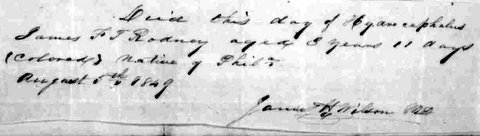 Died this day of Hydrocephalus
James F T Rodney aged 3 years 11 days
(Colored) Native of Phila
August 5th 1849
James H Wilson MD